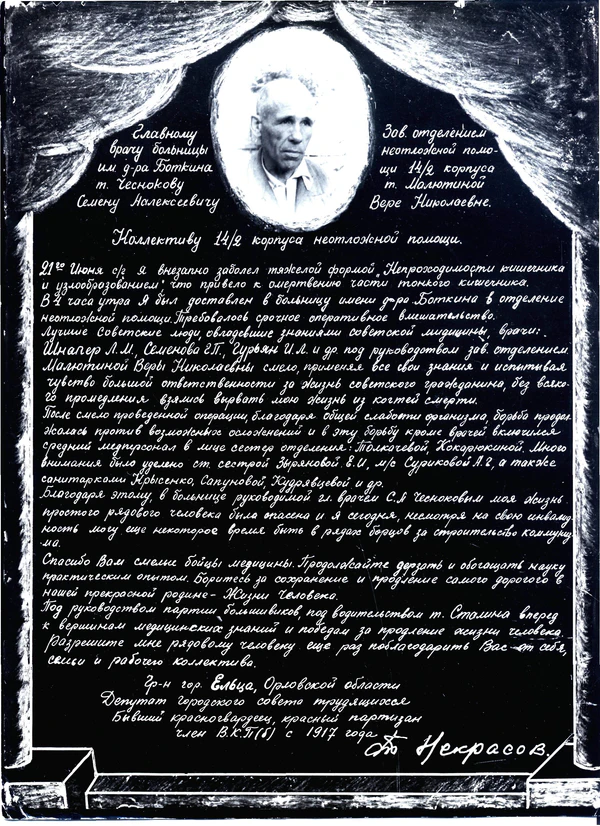 Главному
врачу больницы
им д-ра Боткина
т. Чеснокову
Семену Налексеевичу
Зав. отделением
неотложной помо-
щи 14/2 корпуса
т. Малютиной
Вере Николаевне.
Коллективу 14/2 корпуса неотложной помощи.
21го Июня с/г я внезапно заболел тяжелой формой „Непроходимости кишечника
и узлообразованием" что привело к омертвению части тонкого кишечника.
В 4 часа утра Я был доставлен в больницу имени д-ра Боткина в отделение
неотложной помощи. Требовалось срочное оперативное вмешательство.
Лучшие Советские люди, овладевшие знаниями советской медицины, врачи:
Шнапер Л.М., Семенова Е.П., Гурьян И.Л. и др. под руководством зав. отделением
Малютиной Веры Николаевны смело, применяя все свои знания и испытывая
чувство большой ответственности за жизнь советского гражданина, без всяко-
го промедления взялись вырвать мою жизнь из когтей смерти.
После смело проведенной операции, благодаря общей слабости организма, борьба продол-
жалась против возможных осложнений и в эту борьбу кроме врачей включился
средний медперсонал в лице сестер отделения: Толкачевой, Кокарюкиной. Много
внимания было уделено ст. сестрой Зыряновой Е.И, м/с Суриковой А.Г, а также
санитарками Крысенко, Сапуновой, Кудрявцевой и др.
Благодаря этому, в больнице руководимой гл. врачем С.А Чесноковым моя жизнь
простого рядового человека была спасена и Я сегодня, несмотря на свою инвалид
ность могу еще некоторое время быть в рядах борцов за строительство коммуниз
ма.
Спасибо Вам смелые бойцы медицины. Продолжайте дерзать и обогащать науку
практическим опытом. Боритесь за сохранение и продление самого дорогого в
нашей прекрасной родине - Жизни Человека.
Под руководством партии большивиков, под водительством т. Сталина вперед
к вершинам медицинских знаний и победам за продление жизни человека.
Разрешите мне рядовому человеку еще раз поблагодарить Вас от себя,
семьи и рабочего коллектива.
Гр-н гор. Ельца, Орловской области
Депутат городского совета трудящихся
Бывший красногвардеец, красный партизан
член В.К.П(б) с 1917 года
Некрасов.